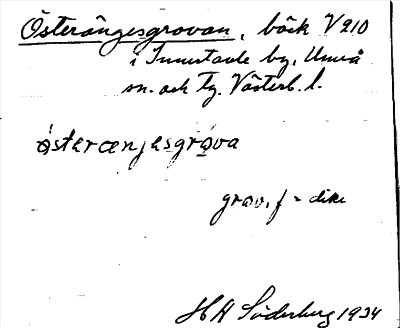 Österängesgrovan, bäck V 210
i Innertavle by, Umeå
sn. och tg. Västerb. l.
östəræŋjesgrøva
grøv, f = dike
H H Söderberg 1934